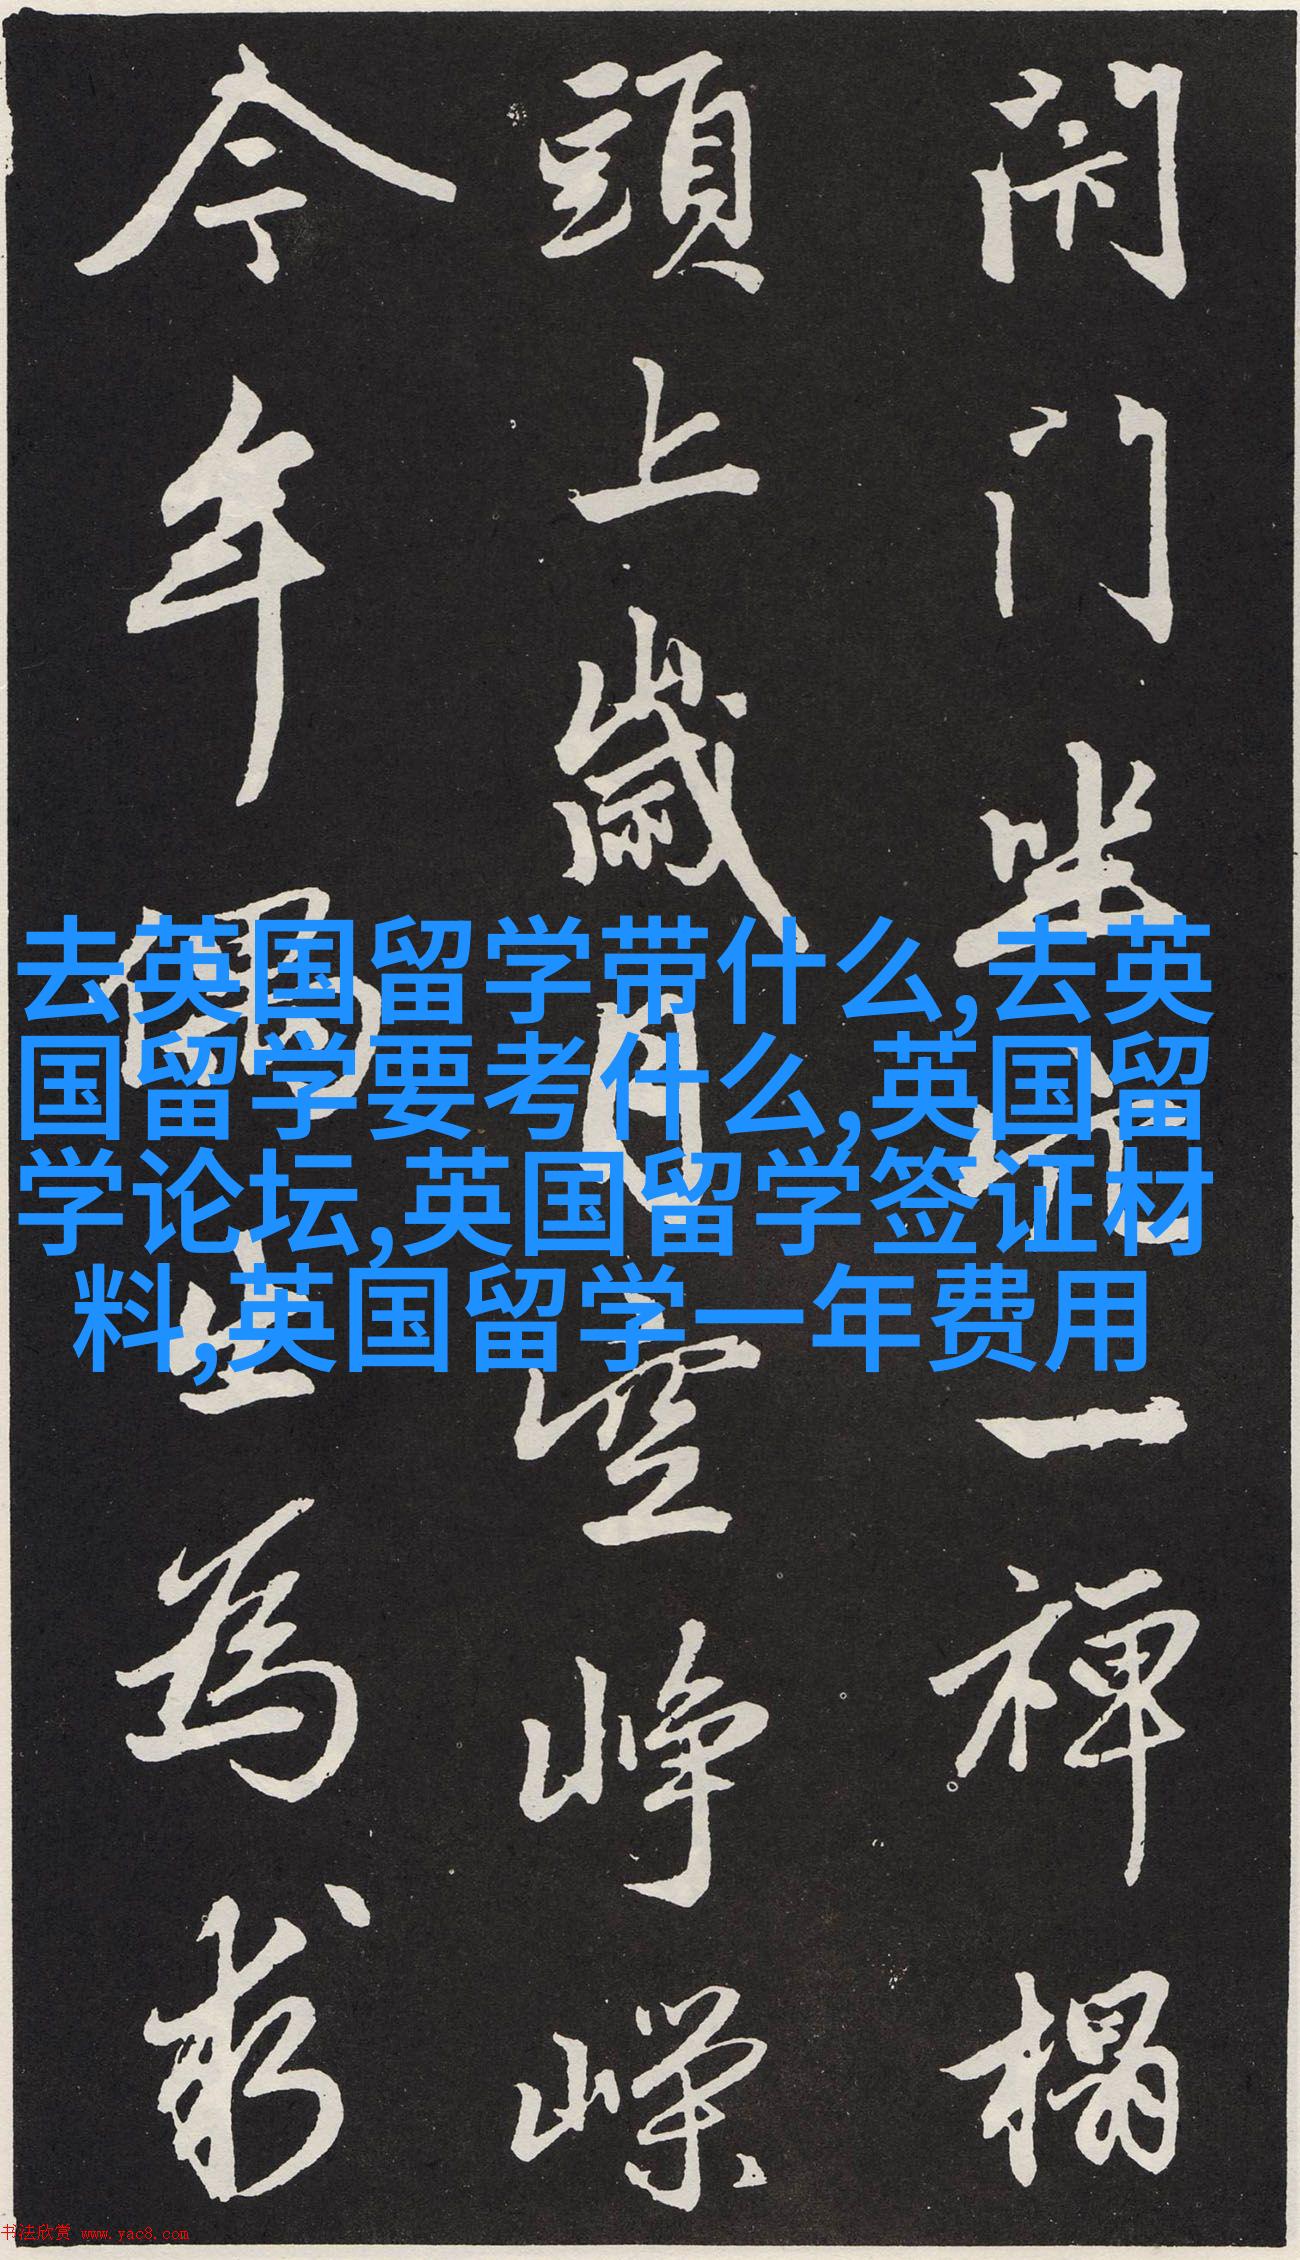 闭门坐穴一禪榻
頭上歲月空崢嶸
今年偶出為求
去英国留学带什么,去英
国留学要考什么,英国留
学论坛,英国留学签证材
料,英国留学一年费用
书法欣赏 www.yac8.com